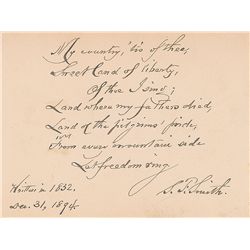 My country, 'tis of thee,
Sweet land of liberty,
Of thee I sing;
Land where my fathers died,
Land of the pilgrims' pride,
From every mountain side
Let freedom ring
S. F. Smith.
Written in 1832.
Dec. 31, 1894.